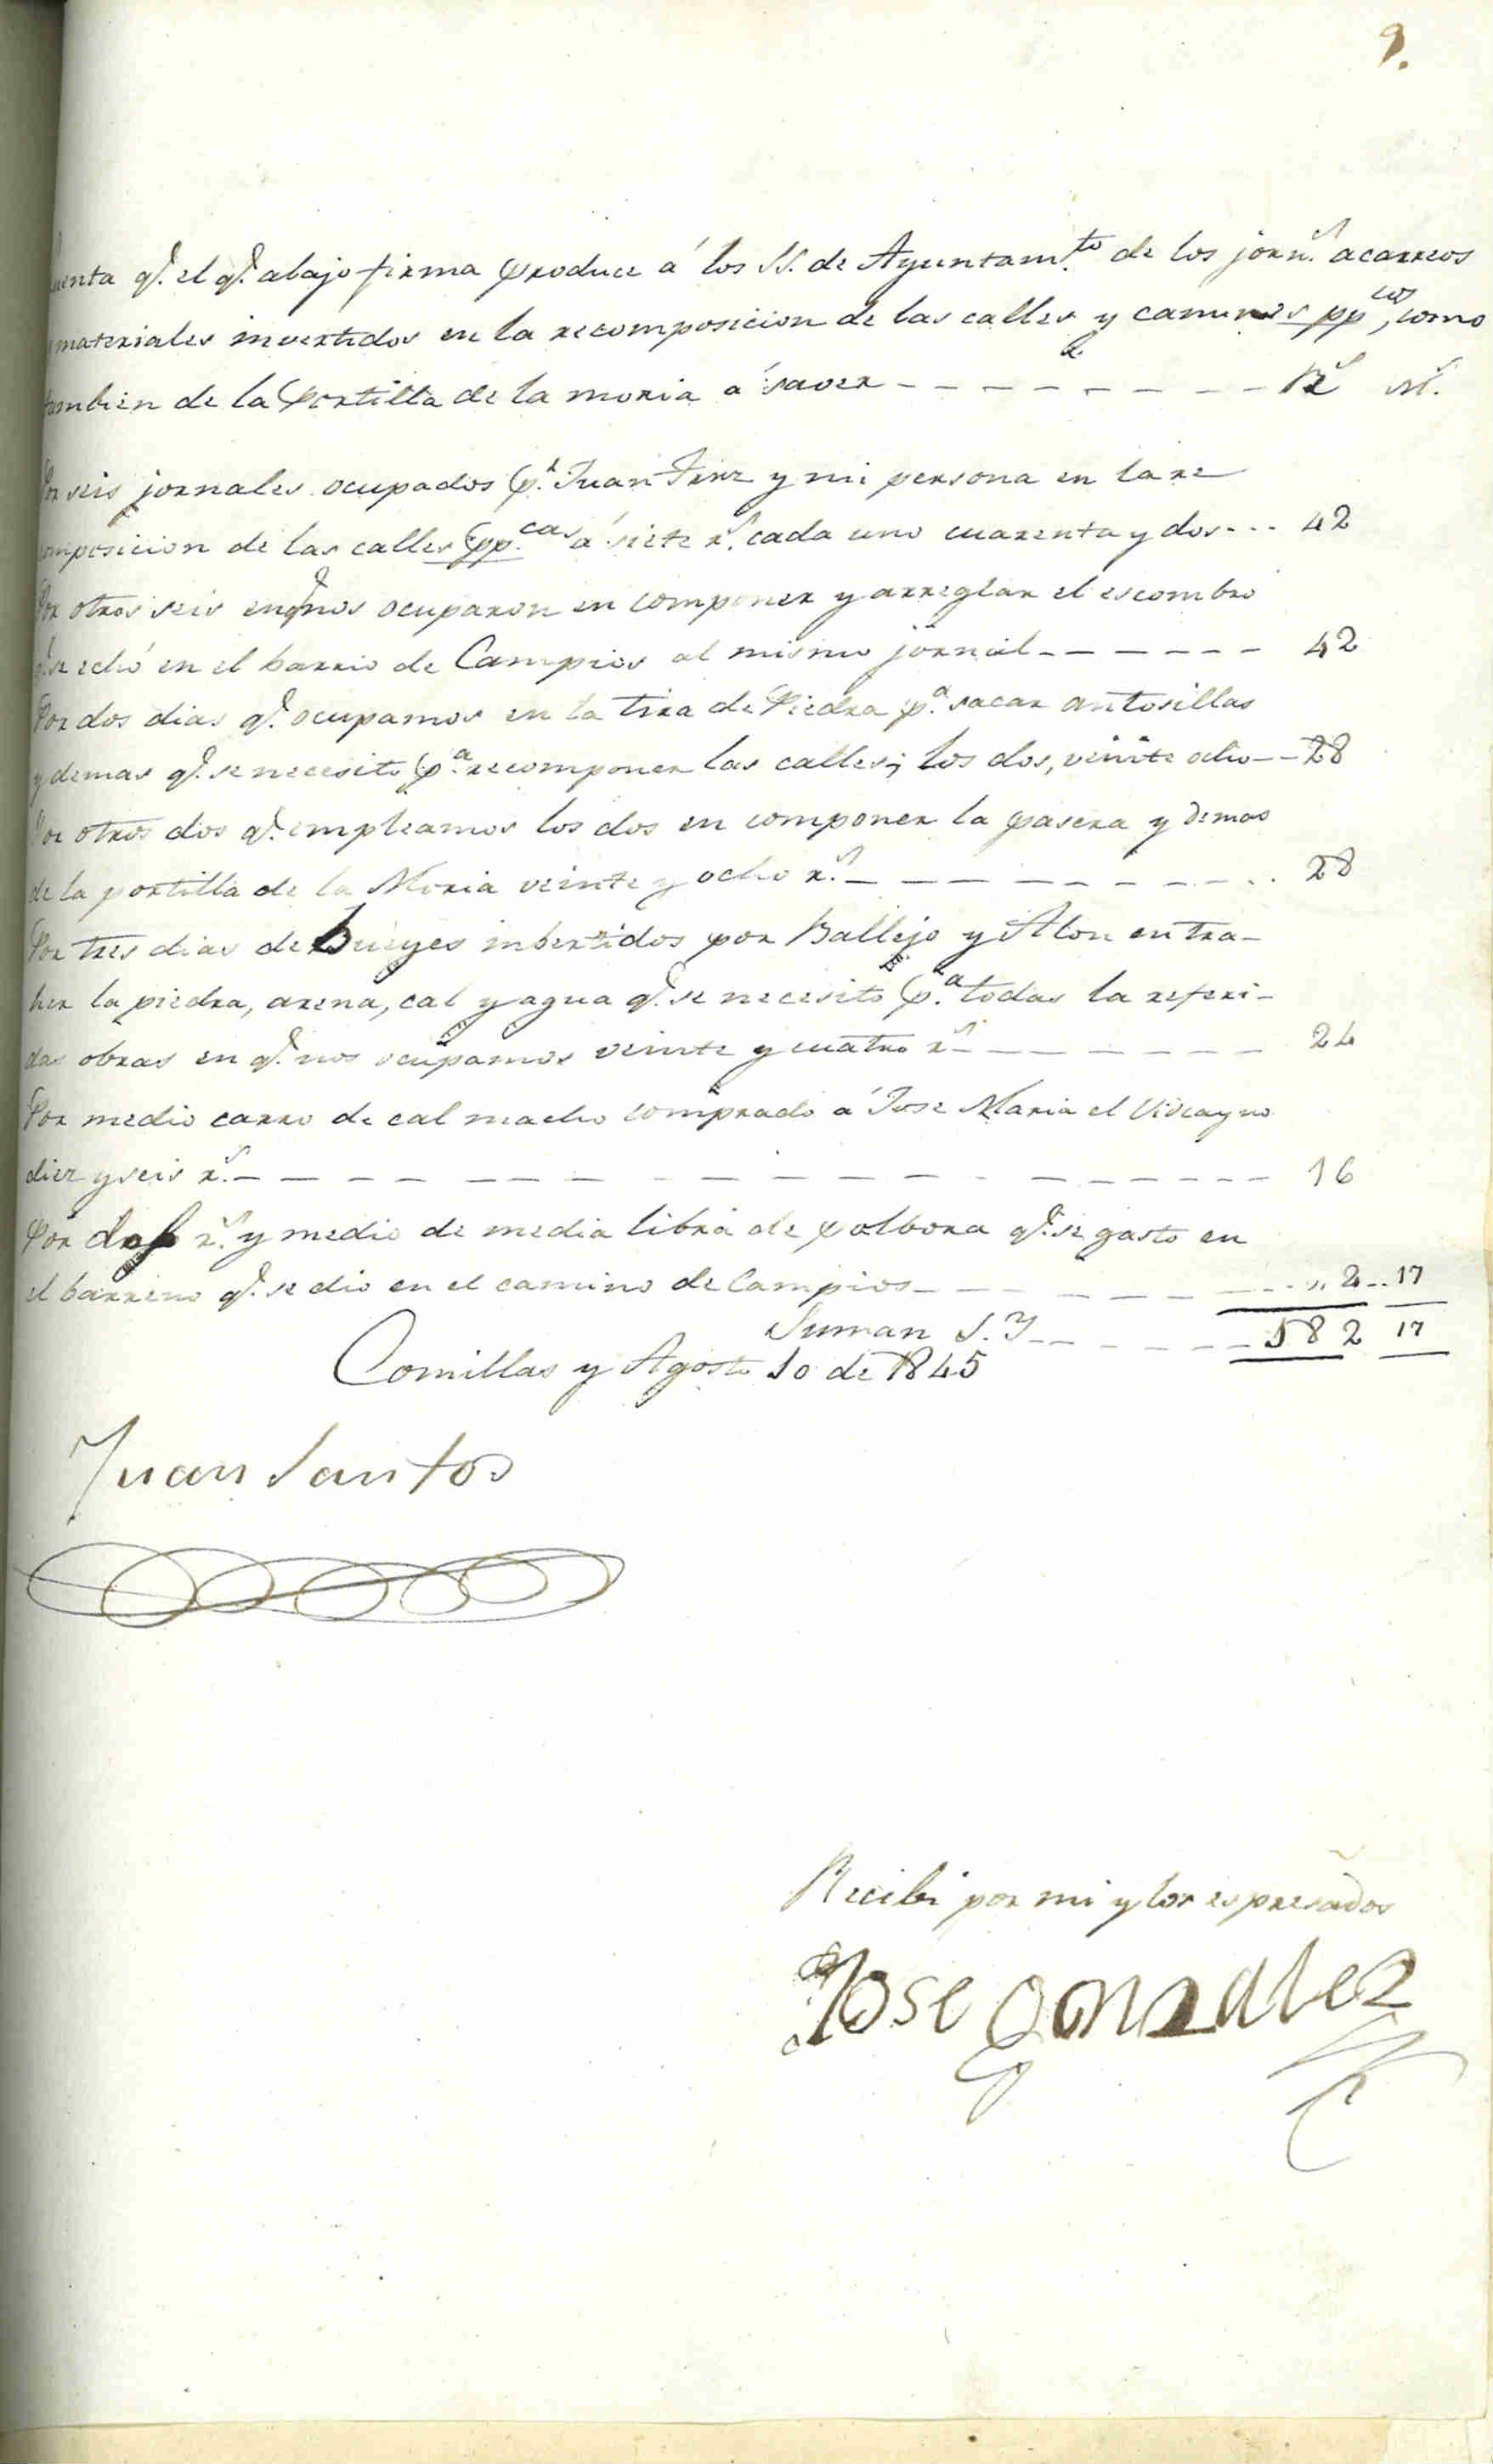 9.
Cuenta q.e el q.e abajo firma produce á los SS. de Ayuntam.to de los jorn.s acarreos
y materiales invertidos en la recomposicion de las calles y caminos pp.cos, como
tambien de la Portilla de la moria á saver - - - - - - - - R.s M.s
Por seis jornales ocupados p.r Juan Frnz y mi persona en la re
composicion de las calles pp.cas á siete r.s cada uno cuarenta y dos - - - 42
Por otros seis en q.e nos ocuparon en componer y arreglar el escombro
q.e se echó en el barrio de Campios al mismo jornal - - - - - - 42
Por dos dias q.e ocupamos en la tira de Piedra p.a sacar antosillas
y demas q.e se necesito p.a recomponer las calles; los dos, veinte ocho - - 28
Por otros dos q.e empleamos los dos en componer la pasera y demas
de la portilla de la Moria veinte y ocho r.s - - - - - - - - 28
Por tres dias de Bueyes inbertidos por Ballejo y Alon en tra-
her la piedra, arena, cal y agua q.e se necesito p.a todas la referi-
das obras en q.e nos ocupamos veinte y cuatro r.s - - - - - - 24
Por medio carro de cal macho comprado á Jose Maria el Viscayno
diez y seis r.s - - - - - - - - - - - - - - - 16
Por dos r.s y medio de media libra de polbora q.e se gasto en
el barreno q.e se dio en el camino de Campios - - - - - - - - " 2 - - 17
Suman S. Y - - - - - - 182 17
Comillas y Agosto 10 de 1845
Juan Santos
Recibi por mi y los espresados
Jose Gonzalez